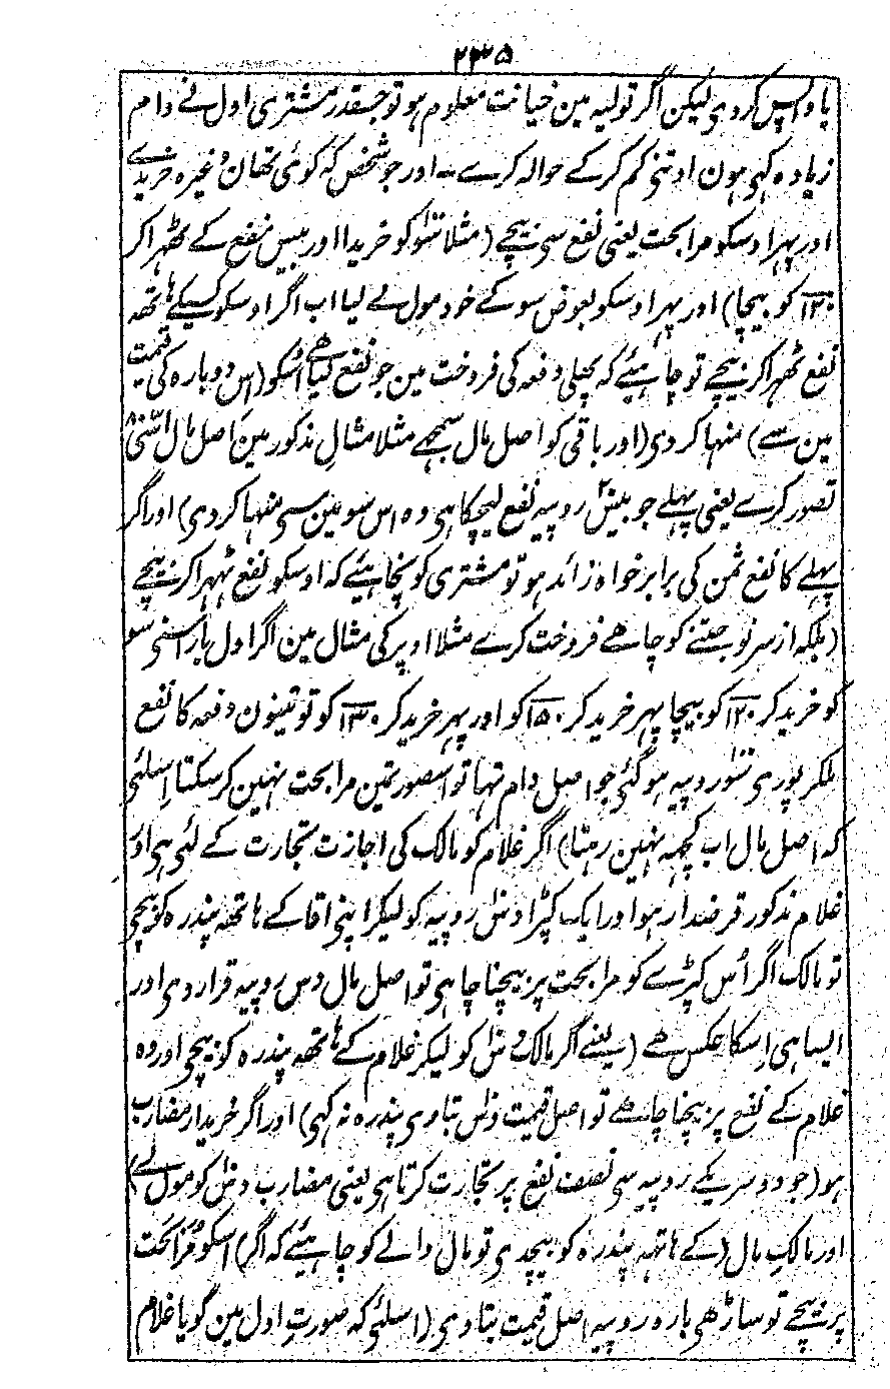 ۲۳۵
یا واپس کردی لیکن اگر تولیہ مین خیانت معلوم ہو تو جسقدر مشتری اول نے دام
زیادہ کہی ہون اوتنی کم کرکے حوالہ کرے ۔ اور جو شخص کہ کوئی تھان وغیرہ خریدے
اور پہر اوسکو مرابحت یعنی نفع سی بیچے (مثلا سو ۱۰۰ کو خریدا اور بیس نفع کے ٹھہرا کر
۱۲۰ کو بیچا) اور پہر اوسکو بعوض سو کے خود مول لے لیا اب اگر اوسکو کسیکے ہاتھ
نفع ٹھہرا کر بیچے تو چاہیئے کہ پچھلی دفعہ کی فروخت مین جو نفع لیا ہے اُسکو (اس دوبارہ کی قیمت
مین سے) منہا کردی (اور باقی کو اصل مال سمجھے مثلا مثال مذکور مین اصل مال اسّی ۸۰
تصور کرے یعنی پہلے جو بیس ۲۰ روپیہ نفع لیچکا ہی وہ اس سو مین سی منہا کردی) اور اگر
پہلے کا نفع ثمن کی برابر خواہ زائد ہو تو مشتری کو نچاہیئے کہ اوسکو نفع ٹہرا کر بیچے
(بلکہ از سر نو جتنے کو چاہے فروخت کرے مثلا اوپر کی مثال مین اگر اول بار اسنی سو
کو خرید کر ۱۲۰ کو بیچا پہر خرید کر ۱۵۰ کو اور پہر خرید کر ۱۳۰ کو تو تینون دفعہ کا نفع
ملکر پوری سو ۱۰۰ روپیہ ہو گئی جو اصل دام تہا تو اسصورتمین مرابحت نہین کرسکتا اسلئی
کہ اصل مال اب کچھہ نہین رہتا) اگر غلام کو مالک کی اجازت تجارت کے لئی ہی اور
غلام مذکور قرضدار ہو اور ایک کپڑا دس روپیہ کو لیکر اپنی آقا کے ہاتھہ پندرہ کو بیچی
تو مالک اگر اُس کپڑے کو مرابحت پر بیچنا چاہی تو اصل مال دس روپیہ قرار دی اور
ایسا ہی اِسکا عکس ہے (یعنے اگر مالک دس ۱۰ کو لیکر غلام کے ہاتھہ پندرہ کو بیچی اور وہ
غلام کے نفع پر بیچنا چاہے تو اصل قیمت دس بتاوی پندرہ نہ کہی) اور اگر خریدار مضارب
ہو (جو دوسریکے روپیہ سی نصف نفع پر تجارت کرتا ہی یعنی مضارب دس کو مول لے)
اور مالکِ مال (کے ہاتھہ پندرہ کو بیچدی تو مال والے کو چاہیئے کہ اگر) اسکو مُرابحت
پر بیچے تو ساڑھی بارہ روپیہ اصل قیمت بتاوی (اسلئی کہ صورتِ اول مین گویا غلام